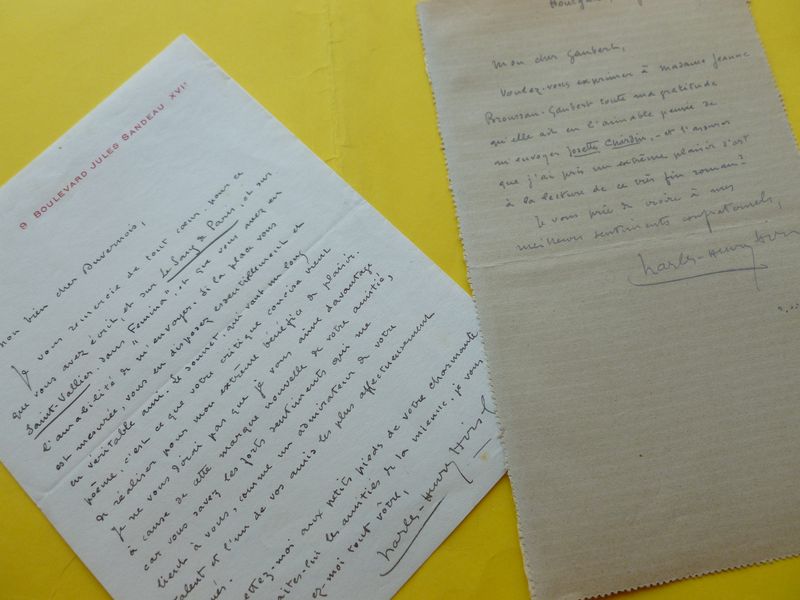 9 BOULEVARD JULES SANDEAU XVIe
mon bien cher Duvernois,
Je vous remercie de tout cœur, pour ce
que vous avez écrit, et sur Le Sang de Paris, et sur
Saint-Vallier, dans "Femina", et que vous avez eu
l'amabilité de m'envoyer. Si la place vous
est mesurée, vous en disposez essentiellement et
en véritable ami. Le sonnet, qui vaut un long
poème, c'est ce que votre critique concise vient
de réaliser pour mon extrême bénéfice de plaisir.
Je ne vous dirai pas que je vous aime davantage
à cause de cette marque nouvelle de votre amitié,
car vous savez les forts sentiments qui me
lient à vous, comme un admirateur de votre
talent et l'un de vos amis les plus affectueusement
ettez-moi aux petits pieds de votre charmante
aites-lui les amitiés de la mienne. je vous
ez-moi tout vôtre,
Charles-Henry Hirsch
Mon cher Gaubert,
Voulez-vous exprimer à madame Jeanne
Broussan-Gaubert toute ma gratitude
qu'elle ait eu l'aimable pensée de
m'envoyer Josette Chardin, - et l'assurer
que j'ai pris un extrême plaisir d'art
à la lecture de ce très fin roman?
Je vous prie de croire à mes
meilleurs sentiments confraternels,
Charles-Henry Hirsch